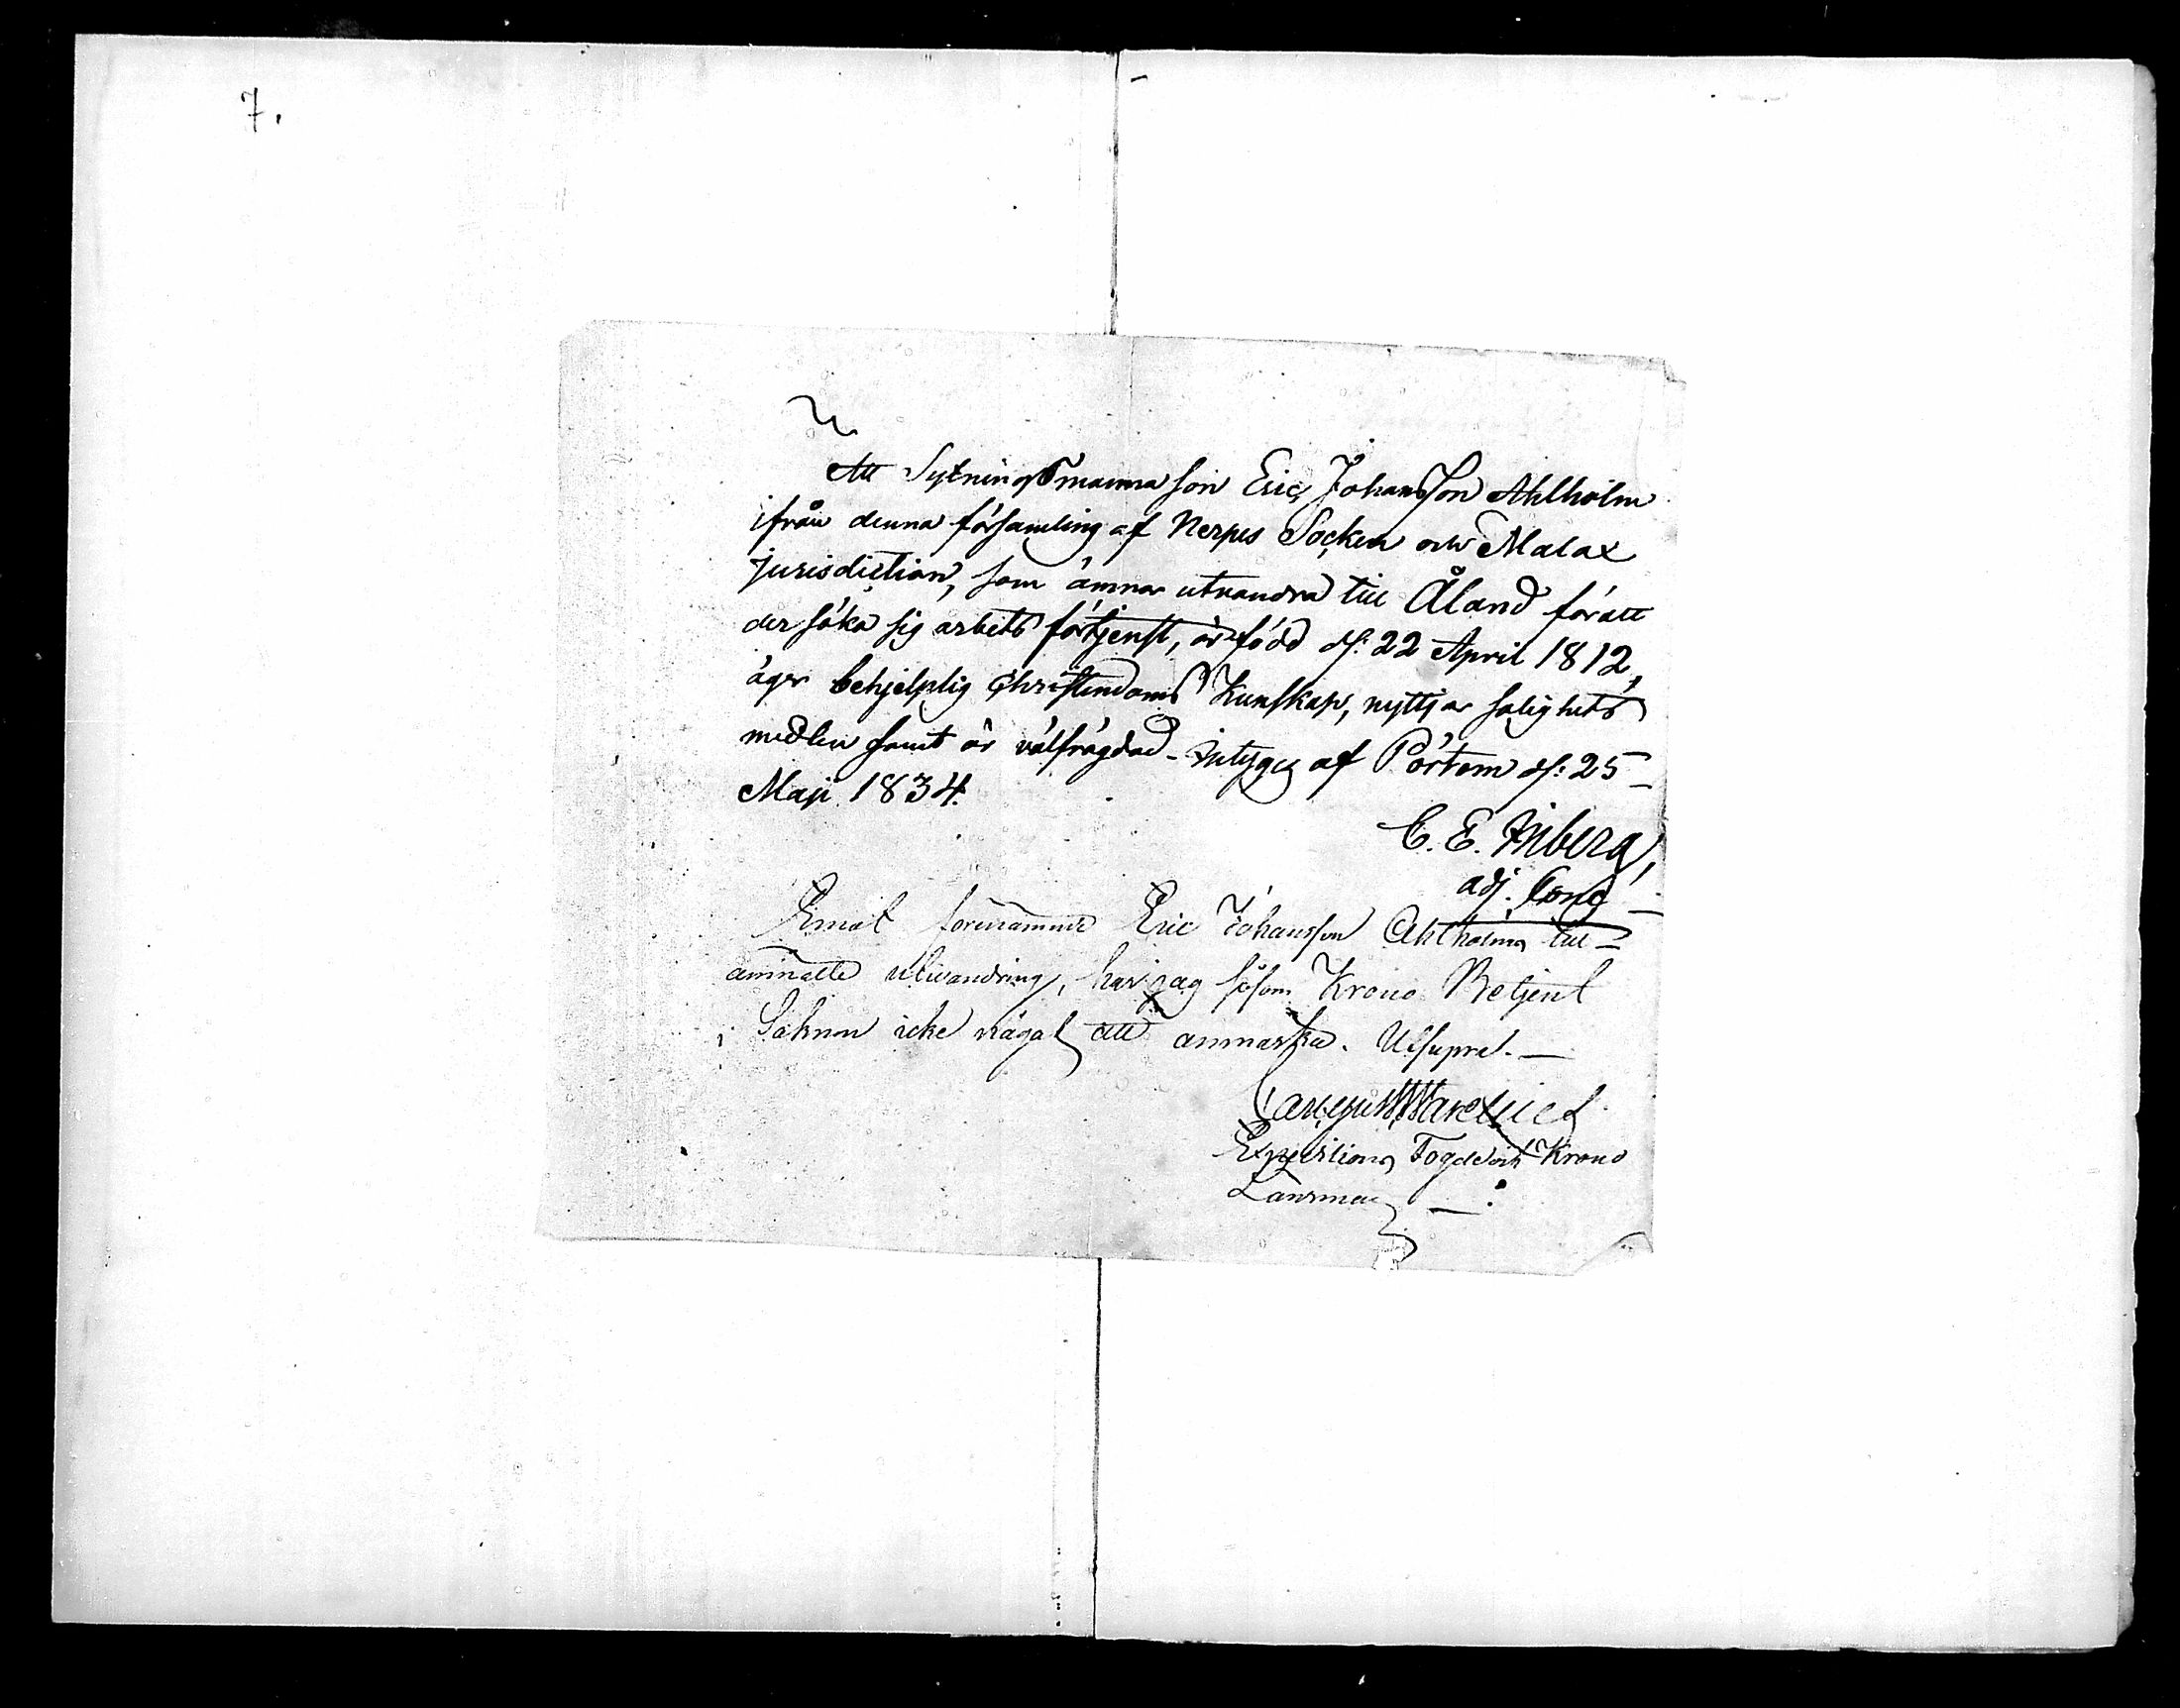 7.
Att Sytningsmanna son Eric Johansson Ahlholm
ifrån denna församling af Nerpes Socken och Malax
jurisdiction, som ämnar utvandra till Åland föratt
der söka sig arbets förtjenst, är född d: 22 April 1812,
äger behjelplig Christendoms Kunskap, nyttjar salighets
medlen samt är välfrägdad - Intygas af Pörtom d: 25
Maji 1834.
C. E. Inberg,
adj. Cong
Emot förenämnde Eric Johansson Ahlholms till-
ämnade utvandring, har jag såsom Krono Betjent
i Soknen icke något att anmärka. Utsupra.
Expeditions Fogde och Krono
Länsman